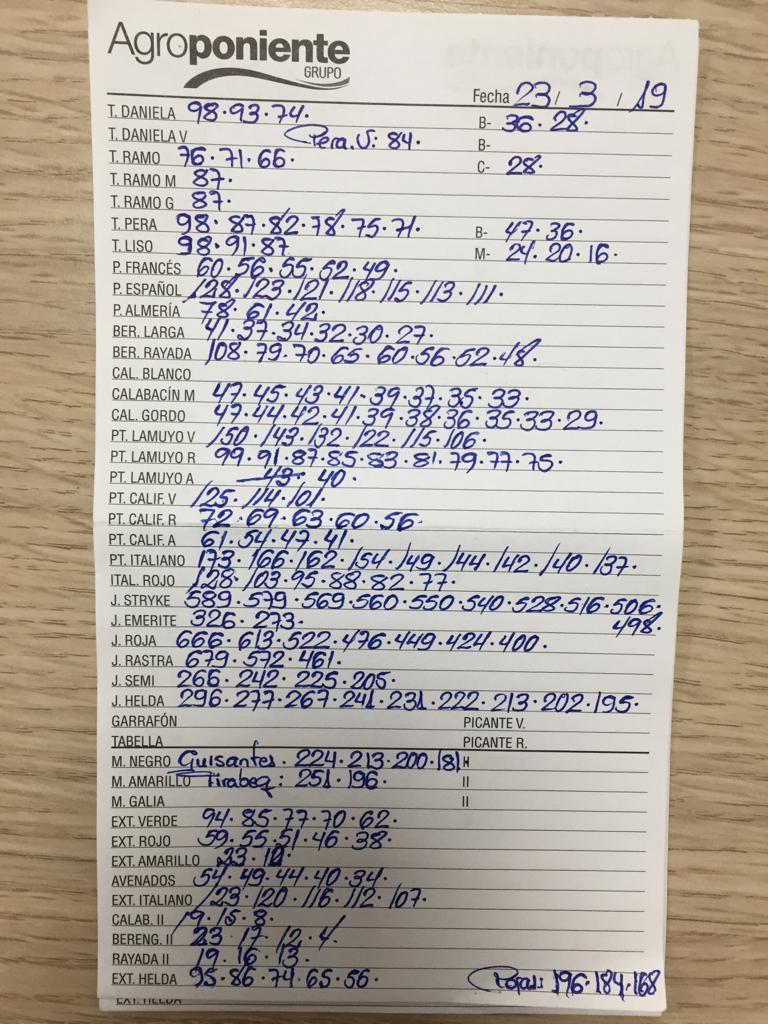 Agroponiente
GRUPO
Fecha 23 / 3 / 19
T. DANELA 98·93·74· B- 36·28·
T. DANIELA V Pera.V: 84· B-
T. RAMO 76·71·66· C- 28·
T. RAMO M 87·
T. RAMO G 87·
T. PERA 98·87·82·78·75·71· B- 47·36·
T. LISO 98·91·87 M- 24·20·16·
P. FRANCÉS 60·56·55·52·49·
P. ESPAÑOL 128·123·121·118·115·113·111·
P. ALMERÍA 78·61·42·
BER. LARGA 41·37·34·32·30·27·
BER. RAYADA 108·79·70·65·60·56·52·48·
CAL. BLANCO
CALABACÍN M 47·45·43·41·39·37·35·33·
CAL. GORDO 47·44·42·41·39·38·36·35·33·29·
PT. LAMUYO V 150·143·132·122·115·106·
PT. LAMUYO R 99·91·87·85·83·81·79·77·75·
PT. LAMUYO A 43·40·
PT. CALIF. V 125·114·101·
PT. CALIF. R 72·69·63·60·56·
PT. CALIF. A 61·54·47·41·
PT. ITALIANO 173·166·162·154·149·144·142·140·137·
ITAL. ROJO 128·103·95·88·82·77·
J. STRYKE 589·579·569·560·550·540·528·516·506·
498·
J. EMERITE 326·273·
J. ROJA 666·613·522·476·449·424·400·
J. RASTRA 679·572·461·
J. SEMI 266·242·225·205·
J. HELDA 296·277·267·241·231·222·213·202·195·
GARRAFÓN PICANTE V.
TABELLA PICANTE R.
M. NEGRO Guisantes· 224·213·200·181 II
M. AMARILLO Tirabeq: 251·196· II
M. GALIA II
EXT. VERDE 94·85·77·70·62·
EXT. ROJO 59·55·51·46·38·
EXT. AMARILLO 23·
AVENADOS 54·49·44·40·34·
EXT. ITALIANO 123·120·116·112·107·
CALAB. II 19·15·8·
BERENG. II 23·17·12·4·
RAYADA II 19·16·13·
EXT. HELDA 95·86·74·65·56· 196·184·168
EXT. HELDA